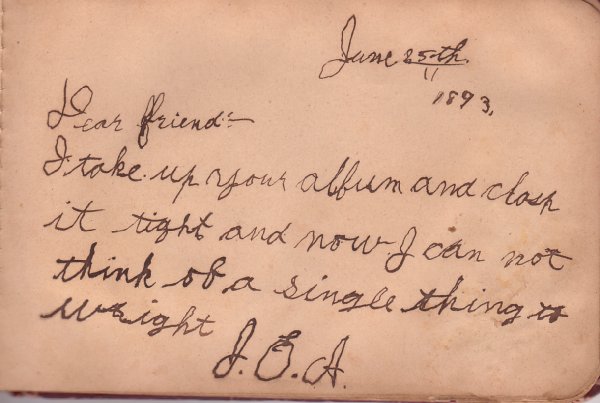 June 25th.
"
1893.
Dear friend:—
I take up your album and clasp
it tight and now I can not
think of a single thing to
wright
J. E. A.